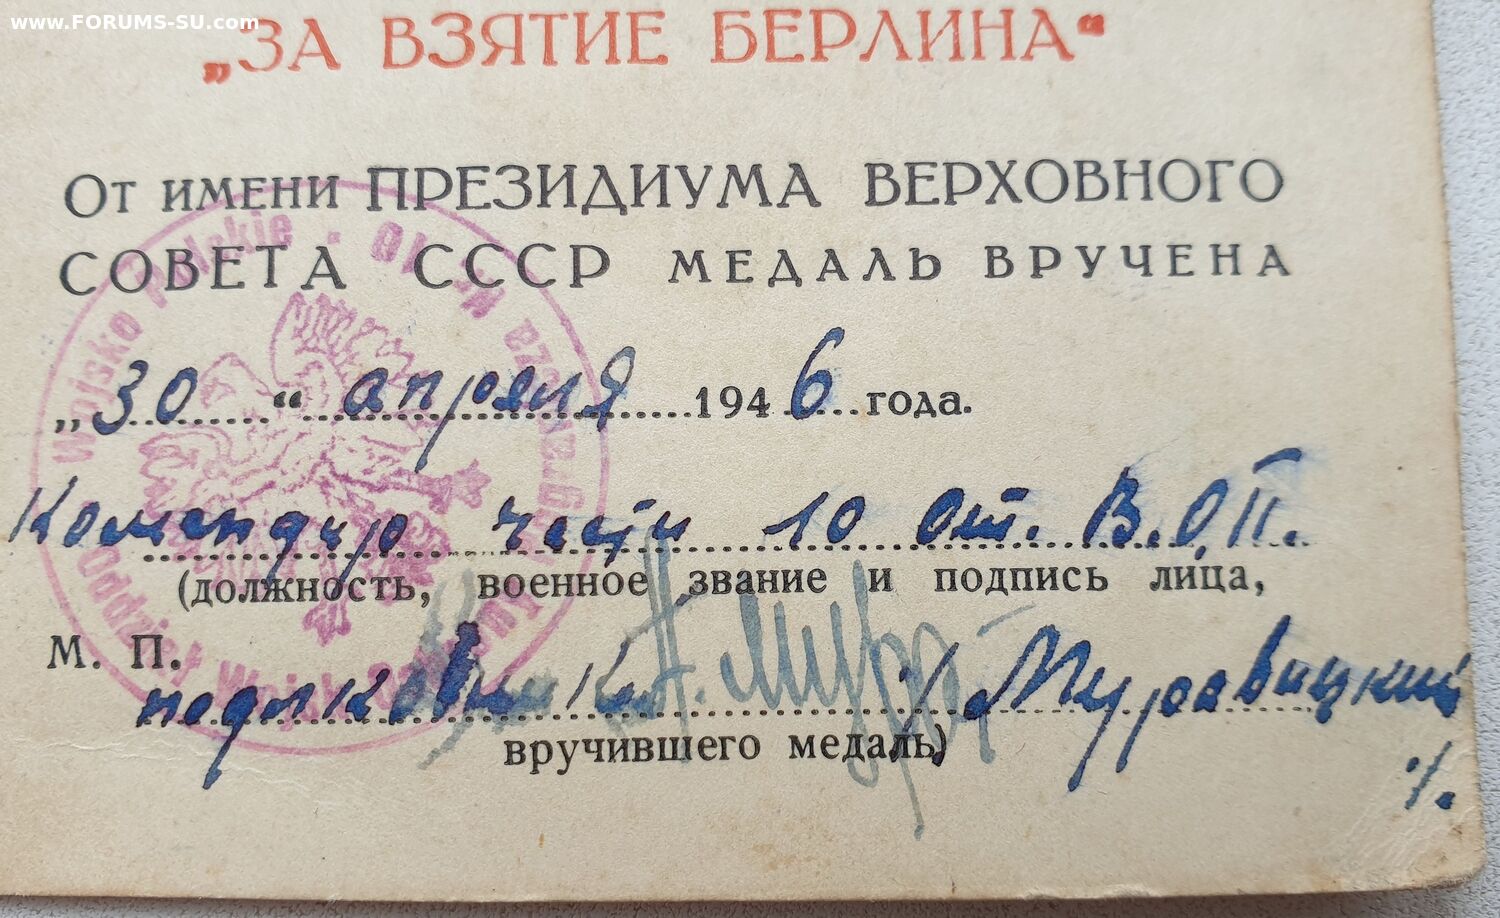 www.FORUMS-SU.com
„ЗА ВЗЯТИЕ БЕРЛИНА“
От имени ПРЕЗИДИУМА ВЕРХОВНОГО
СОВЕТА СССР МЕДАЛЬ ВРУЧЕНА
„30“ апреля 1946 года.
Командир части 10 от. В.О.П.
(должность, военное звание и подпись лица,
М. П.
подполковник /Муравицкий/.
вручившего медаль)
Wojsko Polskie